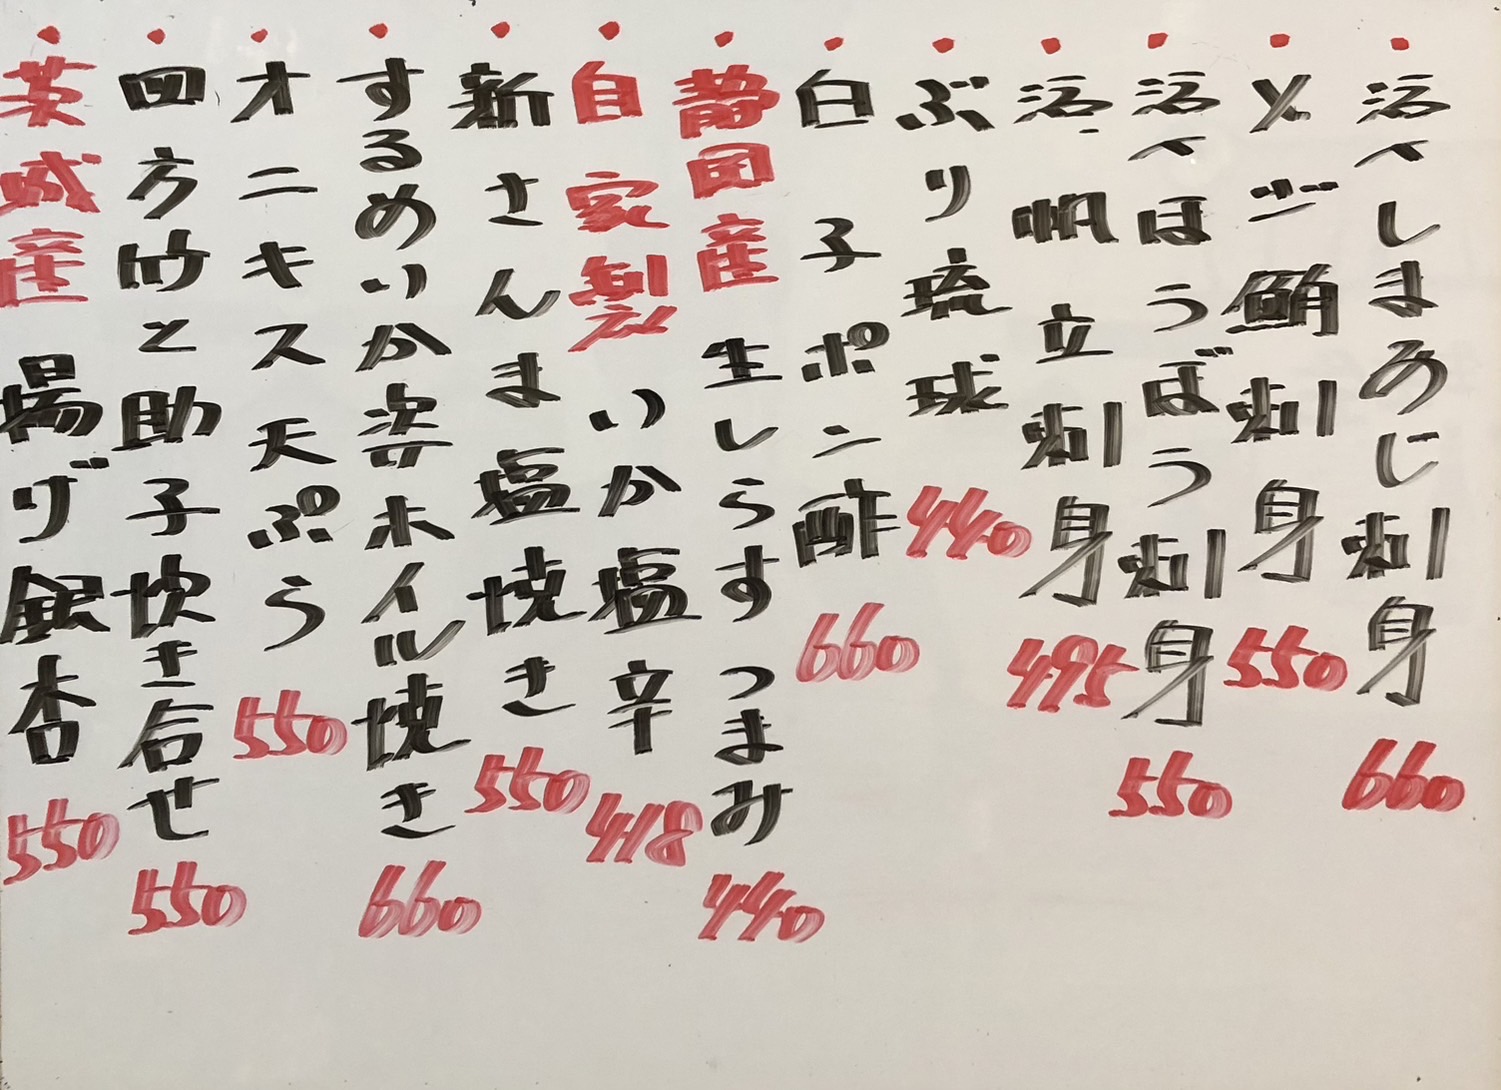 ・活〆しまあじ刺身 660
・メジ鮪刺身 550
・活〆ほうぼう刺身 550
・活帆立刺身 495
・ぶり琉球 440
・白子ポン酢 660
・静岡産 生しらすつまみ 440
・自家製 いか塩辛 418
・新さんま塩焼き 550
・するめいか姿ホイル焼き 660
・オニキス天ぷら 550
・四方竹と助子炊き合せ 550
・茨城産 揚げ銀杏 550